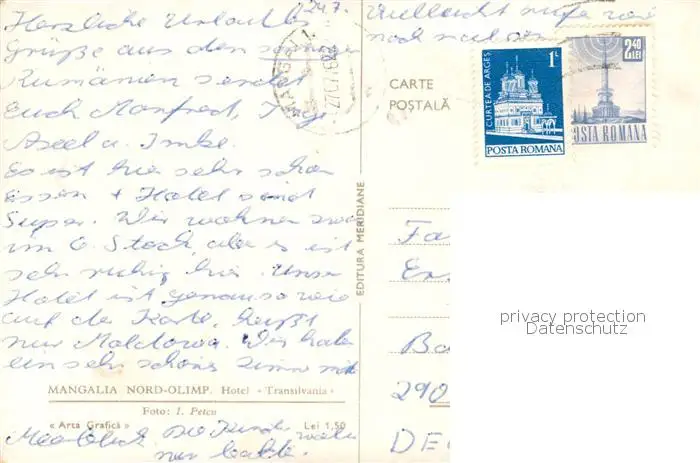 24.7.
Herzliche Urlaubs
Grüße aus dem sonnigen
Rumänien sendet
Euch Manfred, Inge
Axel u. Imke.
Es ist hier sehr schön
Essen + Hotel sind
Super. Wir wohnen zwar
im 6. Stock, aber es ist
sehr ruhig hier. Unser
Hotel ist genauso wie
auf der Karte, heißt
nur Moldova. Wir haben
ein sehr schönes Zimmer mit
MANGALIA NORD-OLIMP. Hotel «Transilvania»
Foto: I. Petcu
« Arta Grafică » Lei 1,50
Meerblick. Die Kinder
nur
Vielleicht
noch mal
CARTE
POȘTALĂ
EDITURA MERIDIANE
CURTEA DE ARGEȘ
1L
POSTA ROMANA
2,40
LEI
POSTA ROMANA
Fa
Bo
290
DE
privacy protection
Datenschutz